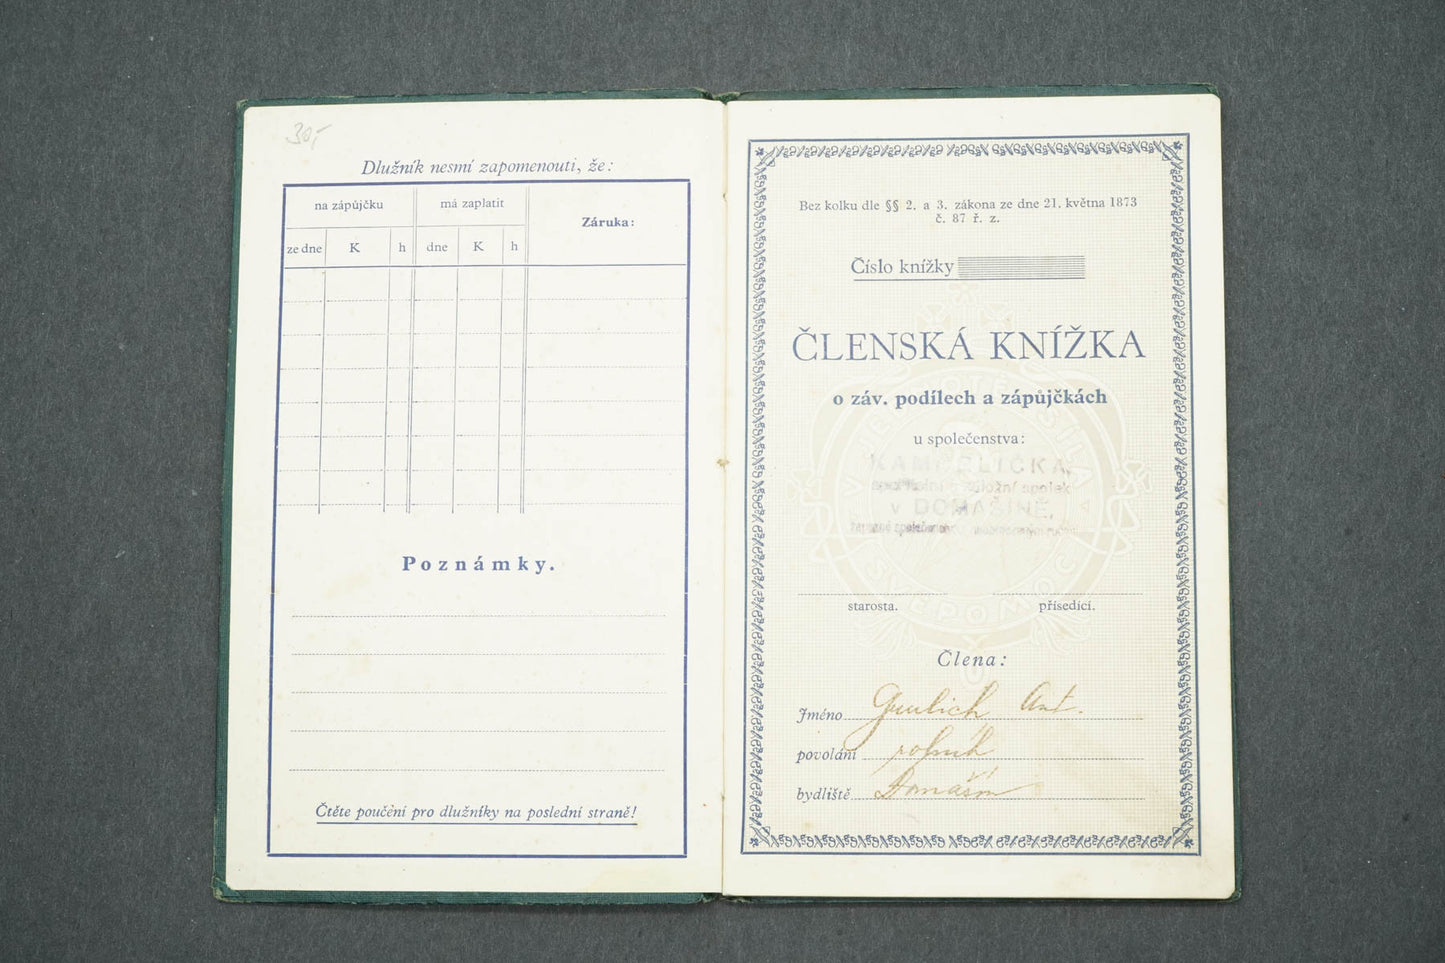 30,-
Dlužník nesmí zapomenouti, že:
na zápůjčku má zaplatit Záruka:
ze dne K h dne K h
Poznámky.
Čtěte poučení pro dlužníky na poslední straně!
Bez kolku dle §§ 2. a 3. zákona ze dne 21. května 1873
č. 87 ř. z.
Číslo knížky
ČLENSKÁ KNÍŽKA
o záv. podílech a zápůjčkách
u společenstva:
KAMPELIČKA,
spořitelní a záložní spolek
v DOMAŠÍNĚ,
zapsané společenstvo
starosta. přísedící.
Člena:
Jméno Ant.
povolání rolník
bydliště Domašín